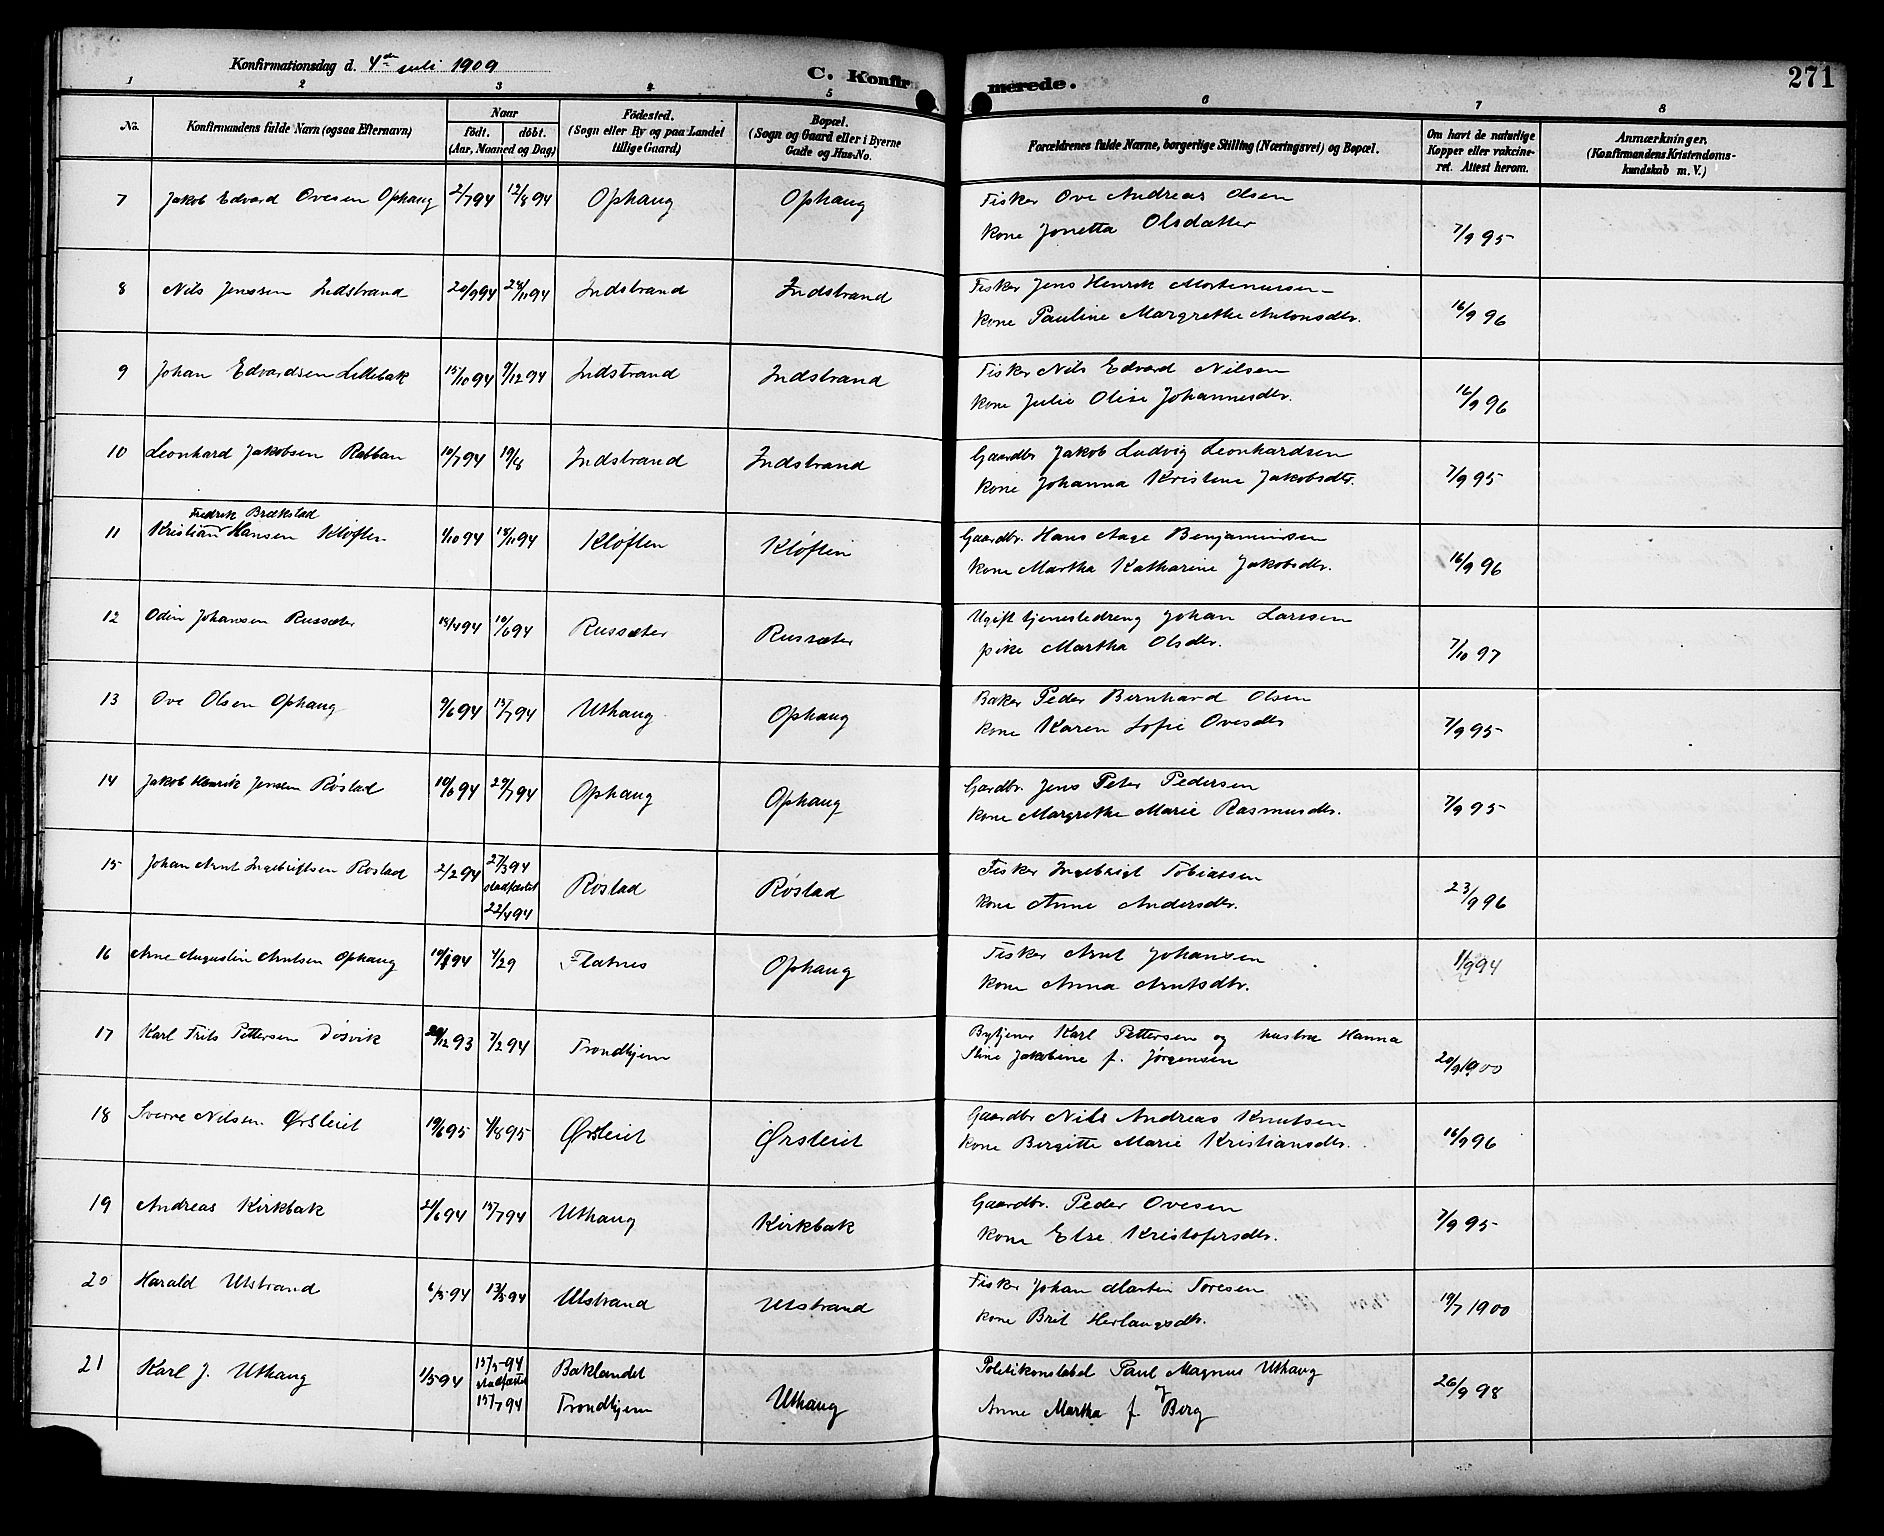 Konfirmationsdag d. 4de juli 1909
C. Konfirmerede.
271
1 2 3 4 5 6 7 8
No.
Konfirmandens fulde Navn (ogsaa Efternavn)
Naar
født. døbt.
(Aar, Maaned og Dag)
Fødested.
(Sogn eller By og paa Landet
tillige Gaard)
Bopæl.
(Sogn og Gaard eller i Byerne
Gade og Hus-No.
Forældrenes fulde Navne, borgerlige Stilling (Næringsvei) og Bopæl.
Om havt de naturlige
Kopper eller vakcine-
ret. Attest herom.
Anmærkninger.
(Konfirmandens Kristendoms-
kundskab m. V.)
7 Jakob Edvard Ovesen Ophaug 2/7 94 12/8 94 Ophaug Ophaug Fisker Ove Andreas Olsen
kone Jonetta Olsdatter 7/9 95
8 Nils Jenssen Indstrand 20/9 94 28/11 94 Indstrand Indstrand Fisker Jens Henrik Mortenussen
kone Pauline Margrethe Antonsdtr. 16/9 96
9 Johan Edvardsen Lillebak 15/10 94 9/12 94 Indstrand Indstrand Fisker Nils Edvard Nilsen
kone Julie Olise Johannesdtr. 16/9 96
10 Leonhard Jakobsen Rabban 10/7 94 19/8 Indstrand Indstrand Gaardbr Jakob Ludvig Leonhardsen
kone Johanna Kristine Jakobsdtr. 7/9 95
Fredrik Brækstad
11 Kristian Hansen Kløften 1/10 94 18/11 94 Kløften Kløften Gaardbr. Hans Aage Benjaminsen
kone Martha Katharine Jakobsdtr. 16/9 96
12 Odin Johansen Russæter 19/4 94 10/6 94 Russæter Russæter Ugift tjenestedreng Johan Larssen
pike Martha Olsdtr. 7/10 97
13 Ove Olsen Ophaug 9/6 94 15/7 94 Uthaug Ophaug Baker Peder Bernhard Olsen
kone Karen Sofie Ovesdtr 7/9 95
14 Jakob Henrik Jenssen Røstad 10/6 94 29/7 94 Ophaug Ophaug Gardbr. Jens Peter Pedersen
kone Margrethe Marie Rasmusdtr. 7/9 95
15 Johan Arnt Ingebrigtsen Røstad 2/2 94 27/3 94 stadfæstet 22/4 94 Røstad Røstad Fisker Ingebrigt Tobiassen
kone Anne Andersdtr. 23/9 96
16 Arne Augustin Arntsen Ophaug 4/29 Flatnes Ophaug Fisker Arnt Johansen
kone Anna Arntsdtr. 1/9 94
17 Karl Frits Pettersen Døsvik 12 93 7/2 94 Trondhjem Bytjener Karl Pettersen og hustru Hanna
Stine Jakobine f. Jørgensen 20/9 1900
18 Sverre Nilssen Ørsleiet 19/6 95 4/8 95 Ørsleiet Ørsleiet Gaardbr Nils Andreas Knutsen
kone Birgitte Marie Kristiansdtr. 16/9 96
19 Andreas Kirkbak 21/6 94 15/7 94 Uthaug Kirkbak Gaardbr. Peder Ovesen
kone Else Kristofersdtr. 7/9 95
20 Harald Utstrand 6/5 94 13/5 94 Utstrand Utstrand Fisker Johan Martin Toresen
kone Brit Herlaugsdtr. 19/7 1900
21 Karl J. Uthaug 1/5 94 15/5 94 stadfæstet 15/7 94 Baklandet
Trondhjem Uthaug Politikonstabel Paul Magnus Uthaug
Anne Martha f. Berg 26/9 98